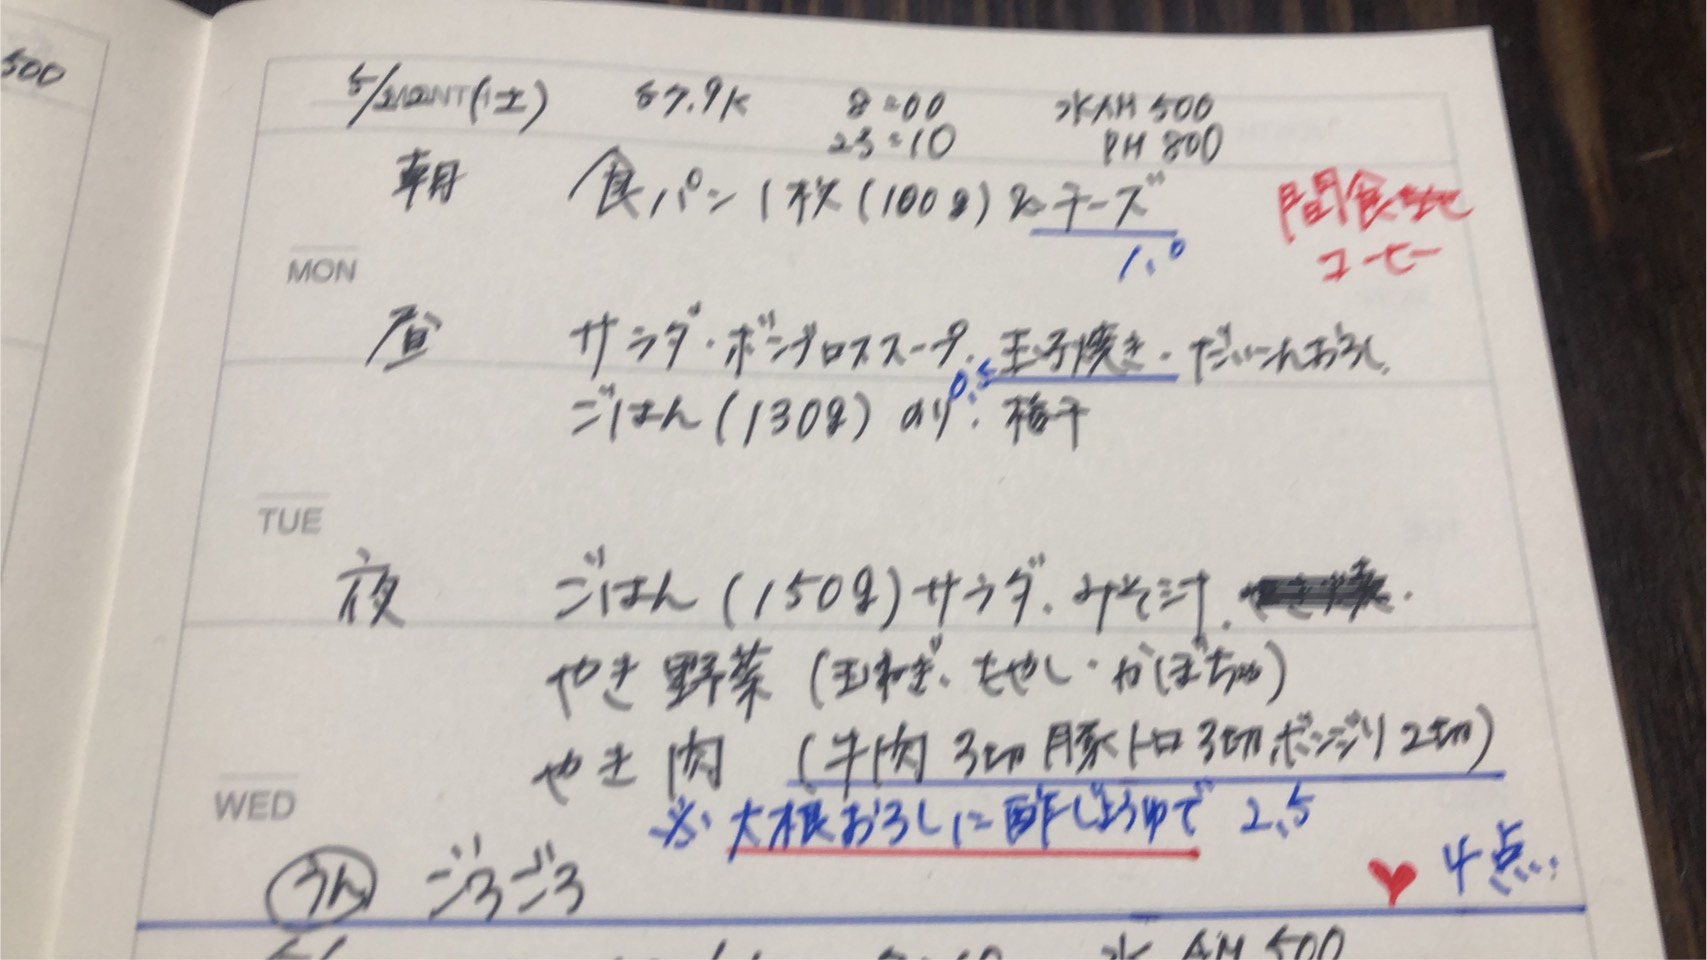 500
5/ (土) 57.9K 8:00 水AM 500
23:10 PM 800
朝 食パン1枚(100g)&チーズ
1.0
間食
コーヒー
MON
昼 サラダ・ボンゴロススープ・玉子焼き・だいこんおろし
0.5
ごはん(130g) のり、梅干
TUE
夜 ごはん(150g)サラダ、みそ汁、
やき野菜(玉ねぎ、もやし・かぼちゃ)
やき肉 (牛肉3切豚トロ3切ボンジリ2切)
WED
※大根おろしに酢じょうゆで 2.5
うん ごろごろ
♥ 4点
水 AM 500